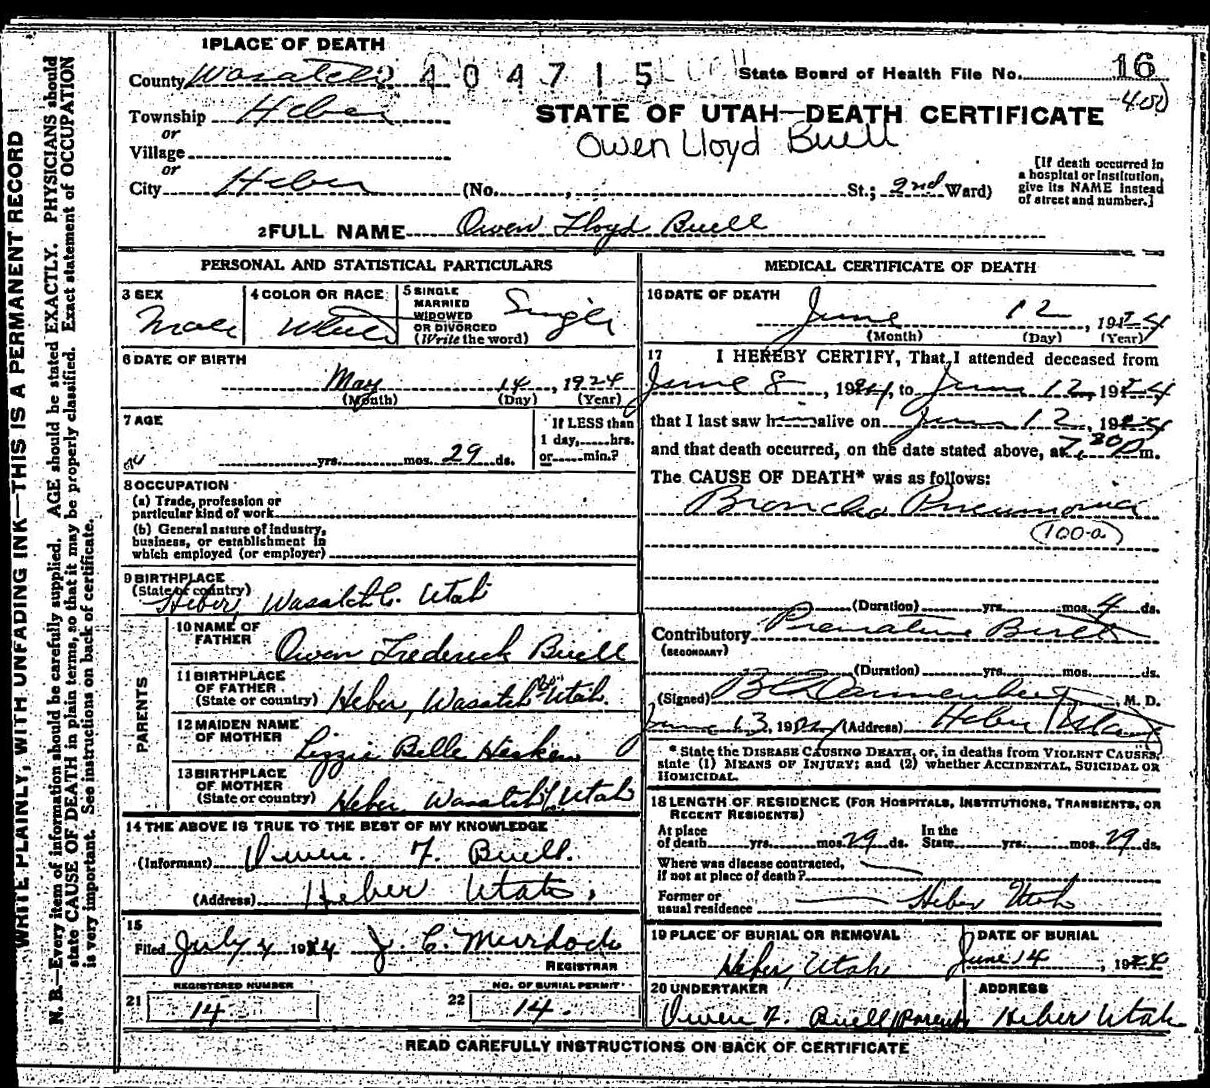 1 PLACE OF DEATH
County Wasatch 2404715 State Board of Health File No. 16
400
Township Heber
or
Village
or
City Heber (No. , St.; 2nd Ward)
STATE OF UTAH—DEATH CERTIFICATE
Owen Lloyd Buell
[If death occurred in
a hospital or institution,
give its NAME instead
of street and number.]
2 FULL NAME Owen Lloyd Buell
PERSONAL AND STATISTICAL PARTICULARS
3 SEX
Male
4 COLOR OR RACE
White
5 SINGLE
MARRIED
WIDOWED
OR DIVORCED
(Write the word)
Single
6 DATE OF BIRTH
May 14, 1924
(Month) (Day) (Year)
7 AGE
yrs. mos. 29 ds.
If LESS than
1 day, hrs.
or min.?
8 OCCUPATION
(a) Trade, profession or
particular kind of work
(b) General nature of industry,
business, or establishment in
which employed (or employer)
9 BIRTHPLACE
(State or country)
Heber, Wasatch C. Utah
PARENTS
10 NAME OF
FATHER Owen Frederick Buell
11 BIRTHPLACE
OF FATHER
(State or country) Heber, Wasatch Co. Utah.
12 MAIDEN NAME
OF MOTHER Lizzie Belle
13 BIRTHPLACE
OF MOTHER
(State or country) Heber, Wasatch, Utah
14 THE ABOVE IS TRUE TO THE BEST OF MY KNOWLEDGE
(Informant) Owen. F. Buell.
(Address) Heber Utah.
15
Filed July 4 1924 J. C. Murdock
REGISTRAR
REGISTERED NUMBER
21 14
NO. OF BURIAL PERMIT
22 14.
MEDICAL CERTIFICATE OF DEATH
16 DATE OF DEATH
June 12, 1924
(Month) (Day) (Year)
17 I HEREBY CERTIFY, That I attended deceased from
June 8, 1924, to June 12, 1924
that I last saw him alive on June 12, 1924
and that death occurred, on the date stated above, at 7.30 P m.
The CAUSE OF DEATH* was as follows:
Broncho Pneumonia
100-a
(Duration) yrs. mos. 4 ds.
Contributory Premature Birth
(SECONDARY)
(Duration) yrs. mos. ds.
(Signed) , M. D.
June 13, 1924 (Address) Heber Utah
* State the DISEASE CAUSING DEATH, or, in deaths from VIOLENT CAUSES,
state (1) MEANS OF INJURY; and (2) whether ACCIDENTAL, SUICIDAL OR
HOMICIDAL.
18 LENGTH OF RESIDENCE (FOR HOSPITALS, INSTITUTIONS, TRANSIENTS, OR
RECENT RESIDENTS)
At place
of death yrs. mos. 29 ds.
In the
State yrs. mos. 29 ds.
Where was disease contracted,
if not at place of death?
Former or
usual residence Heber Utah
19 PLACE OF BURIAL OR REMOVAL
Heber, Utah
DATE OF BURIAL
June 14, 1924
20 UNDERTAKER
Owen F. Buell (Parent)
ADDRESS
Heber Utah
READ CAREFULLY INSTRUCTIONS ON BACK OF CERTIFICATE
WRITE PLAINLY, WITH UNFADING INK—THIS IS A PERMANENT RECORD
N. B.—Every item of information should be carefully supplied. AGE should be stated EXACTLY. PHYSICIANS should
state CAUSE OF DEATH in plain terms, so that it may be properly classified. Exact statement of OCCUPATION
is very important. See instructions on back of certificate.